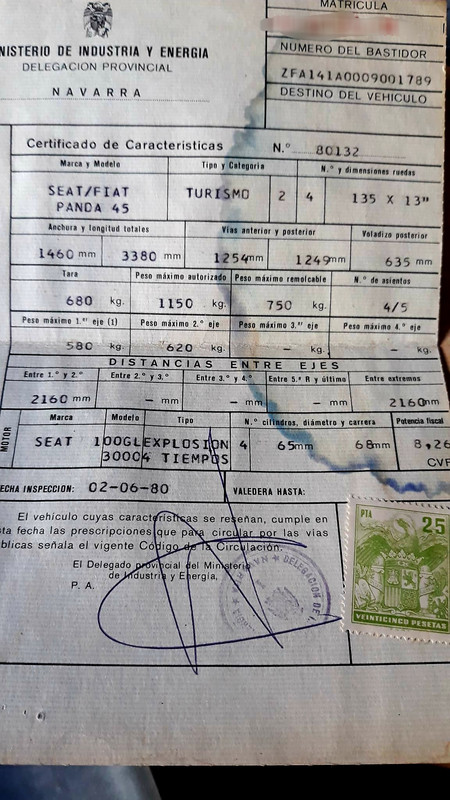 MATRICULA
NISTERIO DE INDUSTRIA Y ENERGIA
DELEGACION PROVINCIAL
NAVARRA
NUMERO DEL BASTIDOR
ZFA141A0009001789
DESTINO DEL VEHICULO
Certificado de Características N.º 80132
Marca y Modelo Tipo y Categoría N.º y dimensiones ruedas
SEAT/FIAT TURISMO 2 4 135 X 13"
PANDA 45
Anchura y longitud totales Vías anterior y posterior Voladizo posterior
1460 mm 3380 mm 1254mm 1249mm 635 mm
Tara Peso máximo autorizado Peso máximo remolcable N.º de asientos
680 kg. 1150 kg. 750 kg. 4/5
Peso máximo 1.er eje (1) Peso máximo 2.º eje Peso máximo 3.er eje Peso máximo 4.º eje
580 kg. 620 kg. - kg. - kg.
DISTANCIAS ENTRE EJES
Entre 1.º y 2.º Entre 2.º y 3.º Entre 3.º y 4.º Entre 5.º R y último Entre extremos
2160 mm - mm - mm - mm 2160mm
MOTOR
Marca Modelo Tipo N.º cilindros, diámetro y carrera Potencia fiscal
SEAT 100GLEXPLOSION 4 65mm 68mm 8,26
30004 TIEMPOS CVF
ECHA INSPECCION: 02-06-80 VALEDERA HASTA:
El vehículo cuyas características se reseñan, cumple en
sta fecha las prescripciones que para circular por las vías
blicas señala el vigente Código de la Circulación.
El Delegado provincial del Ministerio
de Industria y Energía,
P. A.
DELEGACION DE
PTA 25
VEINTICINCO PESETAS